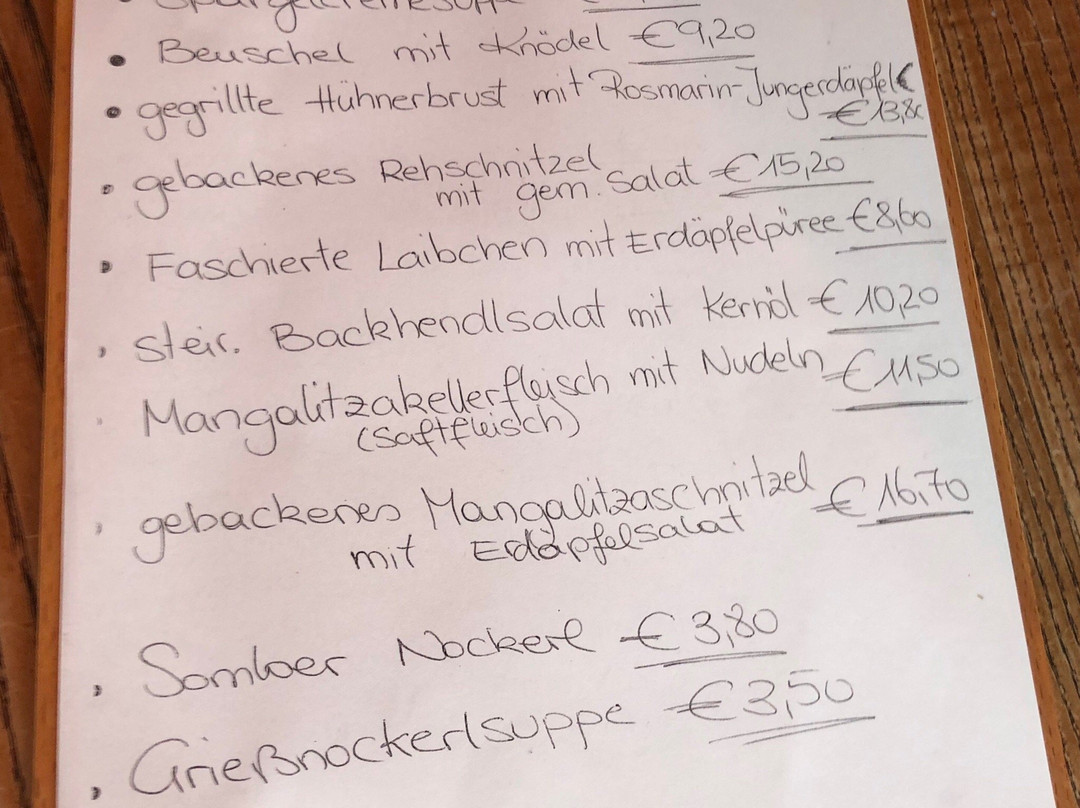 Spargelcremesuppe €
• Beuschel mit Knödel €9,20
• gegrillte Hühnerbrust mit Rosmarin-Jungerdäpfel
€13,80
• gebackenes Rehschnitzel
mit gem. Salat €15,20
• Faschierte Laibchen mit Erdäpfelpüree €8,60
• steir. Backhendlsalat mit Kernöl €10,20
• Mangalitzakellerfleisch mit Nudeln €11,50
(Saftfleisch)
• gebackenes Mangalitzaschnitzel €16,70
mit Erdäpfelsalat
• Somloer Nockerl €3,80
• Grießnockerlsuppe €3,50